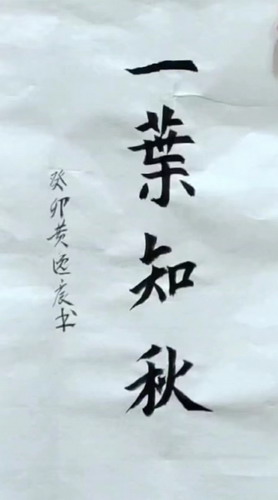 一葉知秋
癸卯黄逸庚书